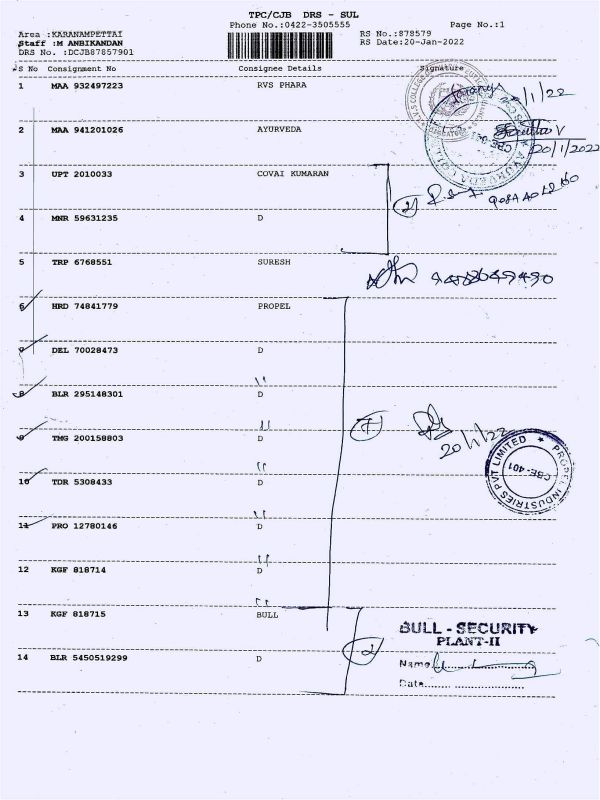 TPC/CJB DRS - SUL
Phone No.:0422-3505555 Page No.:1
Area :KARANAMPETTAI RS No.:878579
Staff :M ANBIKANDAN RS Date:20-Jan-2022
DRS No. :DCJB87857901
S No Consignment No Consignee Details Signature
1 MAA 932497223 RVS PHARA
20/1/22
2 MAA 941201026 AYURVEDA
20/1/2022
3 UPT 2010033 COVAI KUMARAN
2
4 MNR 59631235 D
5 TRP 6768551 SURESH
9488649490
6 HRD 74841779 PROPEL
7 DEL 70028473 D
8 BLR 295148301 D
9 TMG 200158803 D
7 20/1/22
PROPEL INDUSTRIES PVT LIMITED
CBE-401
10 TDR 5308433 D
11 PRO 12780146 D
12 KGF 818714 D
13 KGF 818715 BULL
BULL - SECURITY
PLANT-II
14 BLR 5450519299 D
2
Name
Date